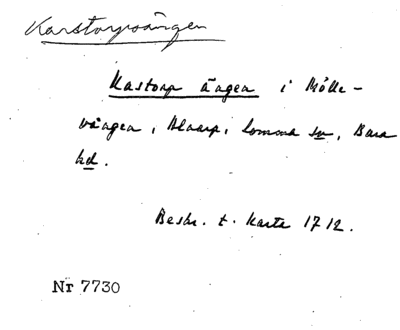 Karstorpsängen
Kastorp ängen i Mölle-
vången, Alnarp, Lomma sn, Bara
hd.
Beskr. t. Karta 1712.
Nr 7730